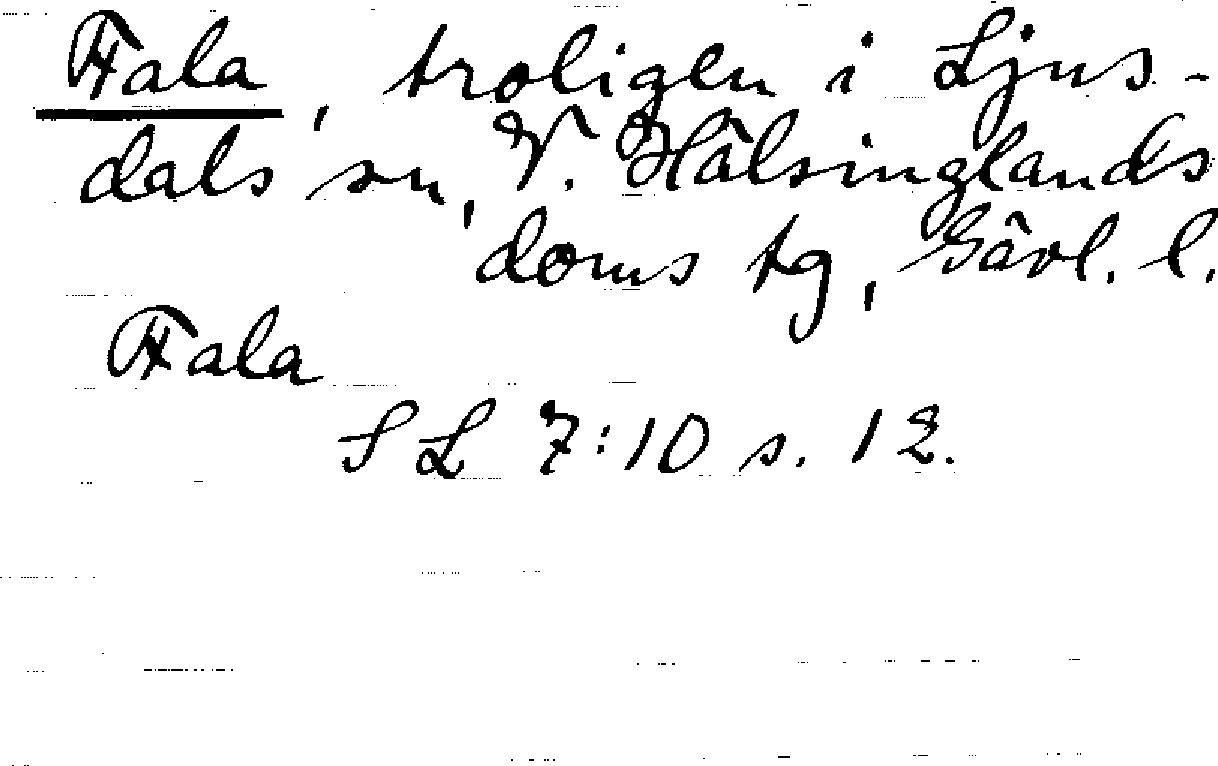 Fala, troligen i Ljus-
dals sn, V. Hälsinglands
doms tg, Gävl. l.
Fala
SL 7:10 s. 12.